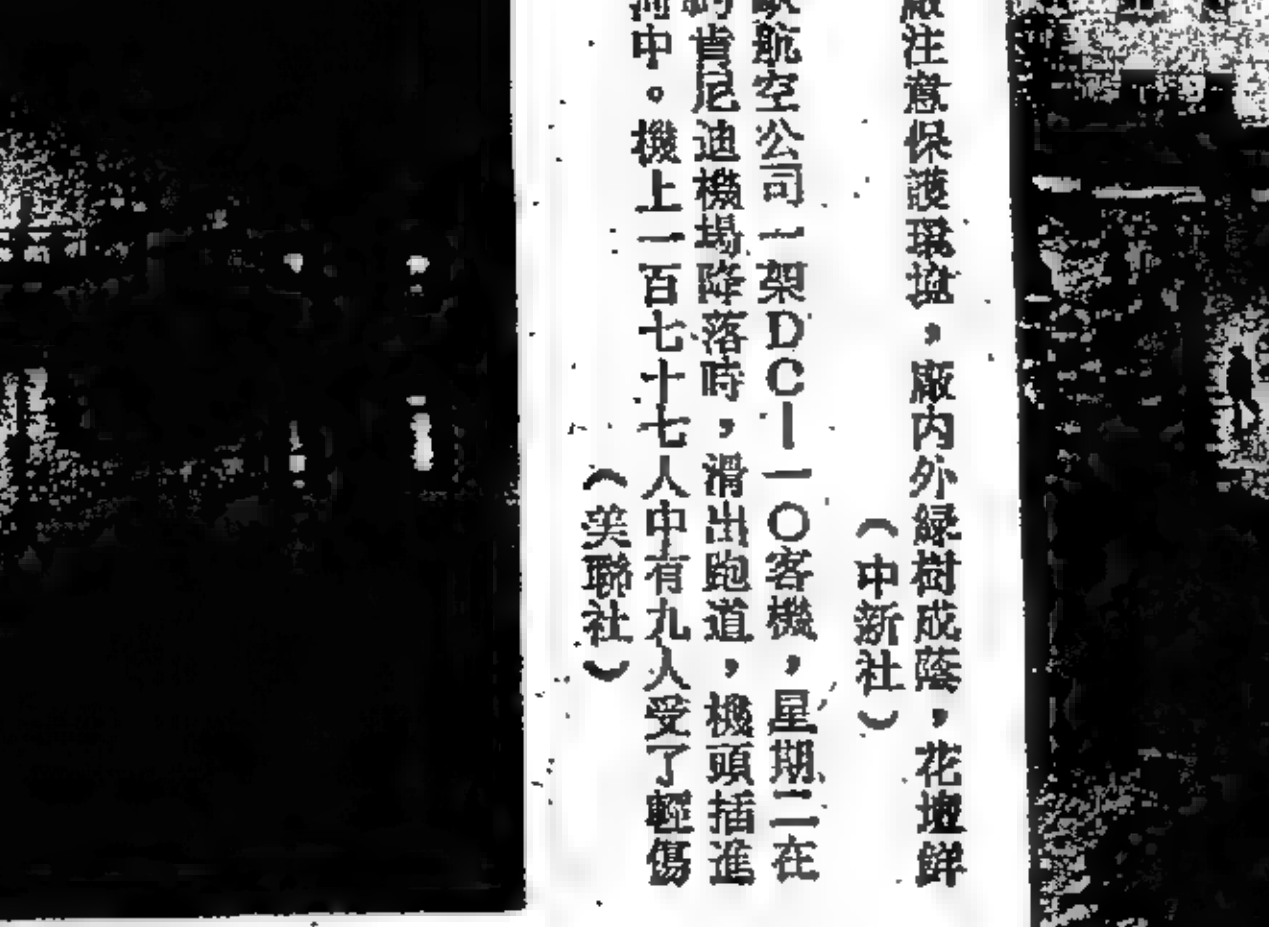 廠注意保護環境，廠內外綠樹成蔭，花壇鮮
（中新社）
航空公司一架DC—一〇客機，星期二在
肯尼迪機場降落時，滑出跑道，機頭插進
中。機上一百七十七人中有九人受了輕傷
（美聯社）